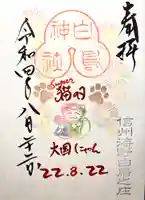 奉拝
信州海野白鳥之庄
白鳥
神社
Super
猫の日
大国にゃん
22.8.22
令和四年八月二十二日